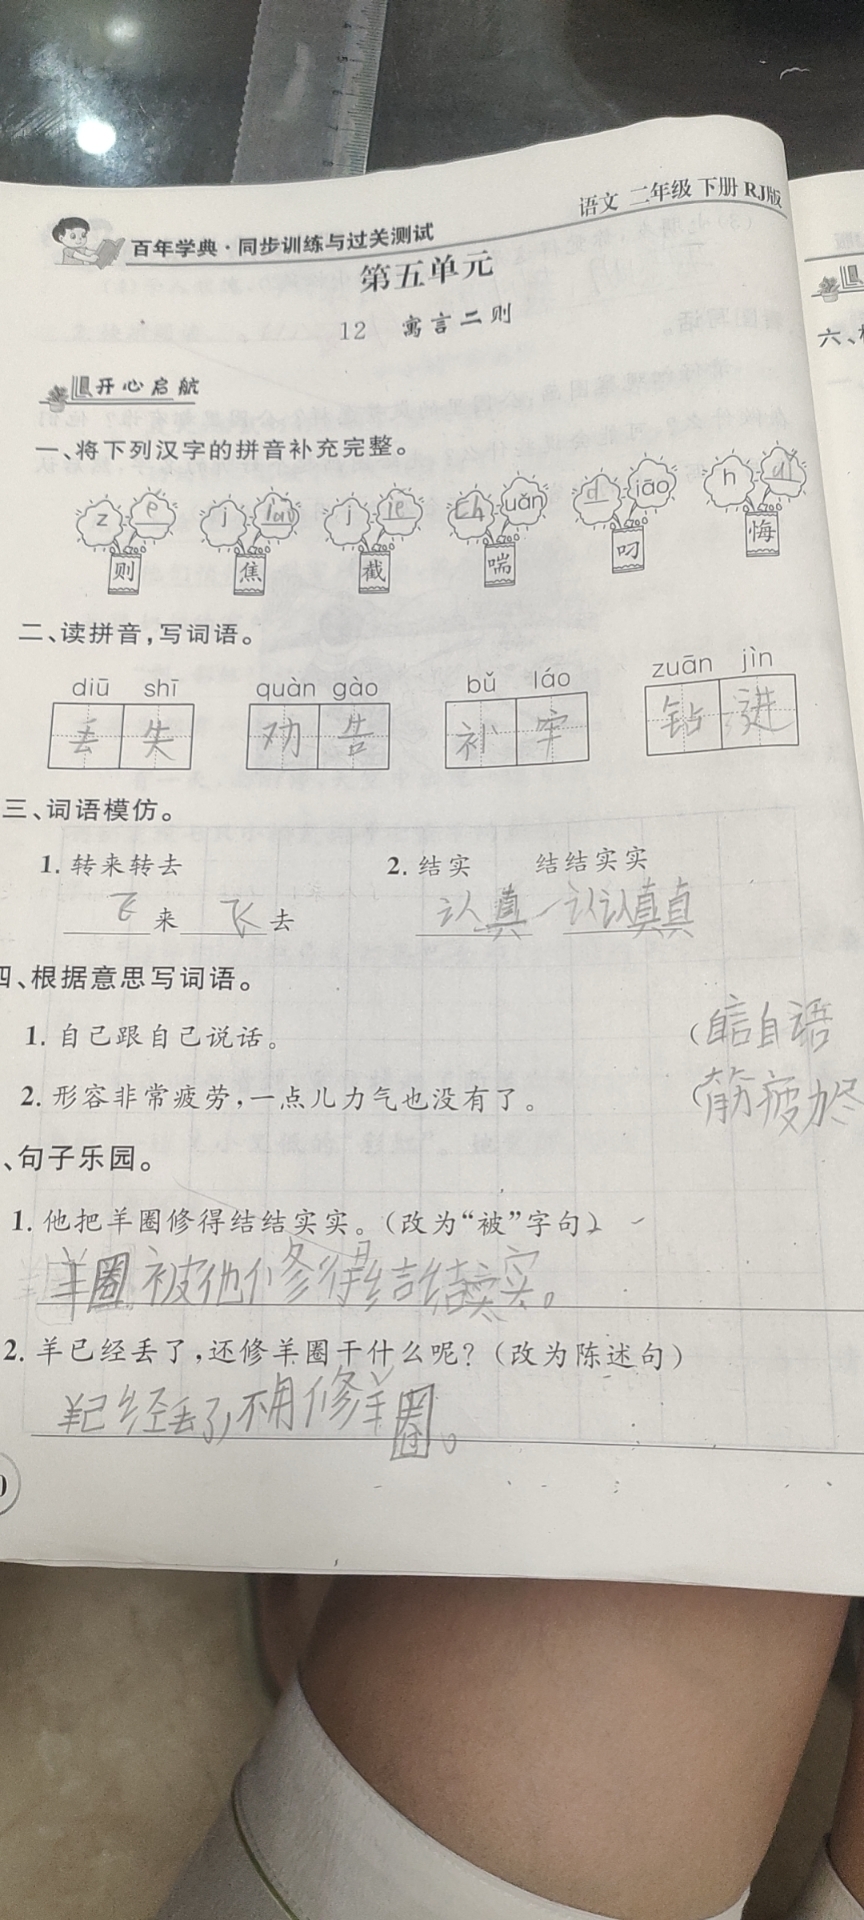 百年学典·同步训练与过关测试
语文 二年级 下册 RJ版
第五单元
12 寓言二则
开心启航
一、将下列汉字的拼音补充完整。
z é j iāo j ié ch uǎn d iāo h uǐ
则 焦 截 喘 叼 悔
二、读拼音,写词语。
diū shī quàn gào bǔ láo zuān jìn
丢失 劝告 补牢 钻进
三、词语模仿。
1. 转来转去 2. 结实 结结实实
飞来飞去 认真 认认真真
四、根据意思写词语。
1. 自己跟自己说话。 (自言自语
2. 形容非常疲劳,一点儿力气也没有了。 (筋疲力尽
、句子乐园。
1. 他把羊圈修得结结实实。(改为“被”字句)
羊圈被他修得结结实实。
2. 羊已经丢了,还修羊圈干什么呢?(改为陈述句)
羊已经丢了,不用修羊圈。
六、